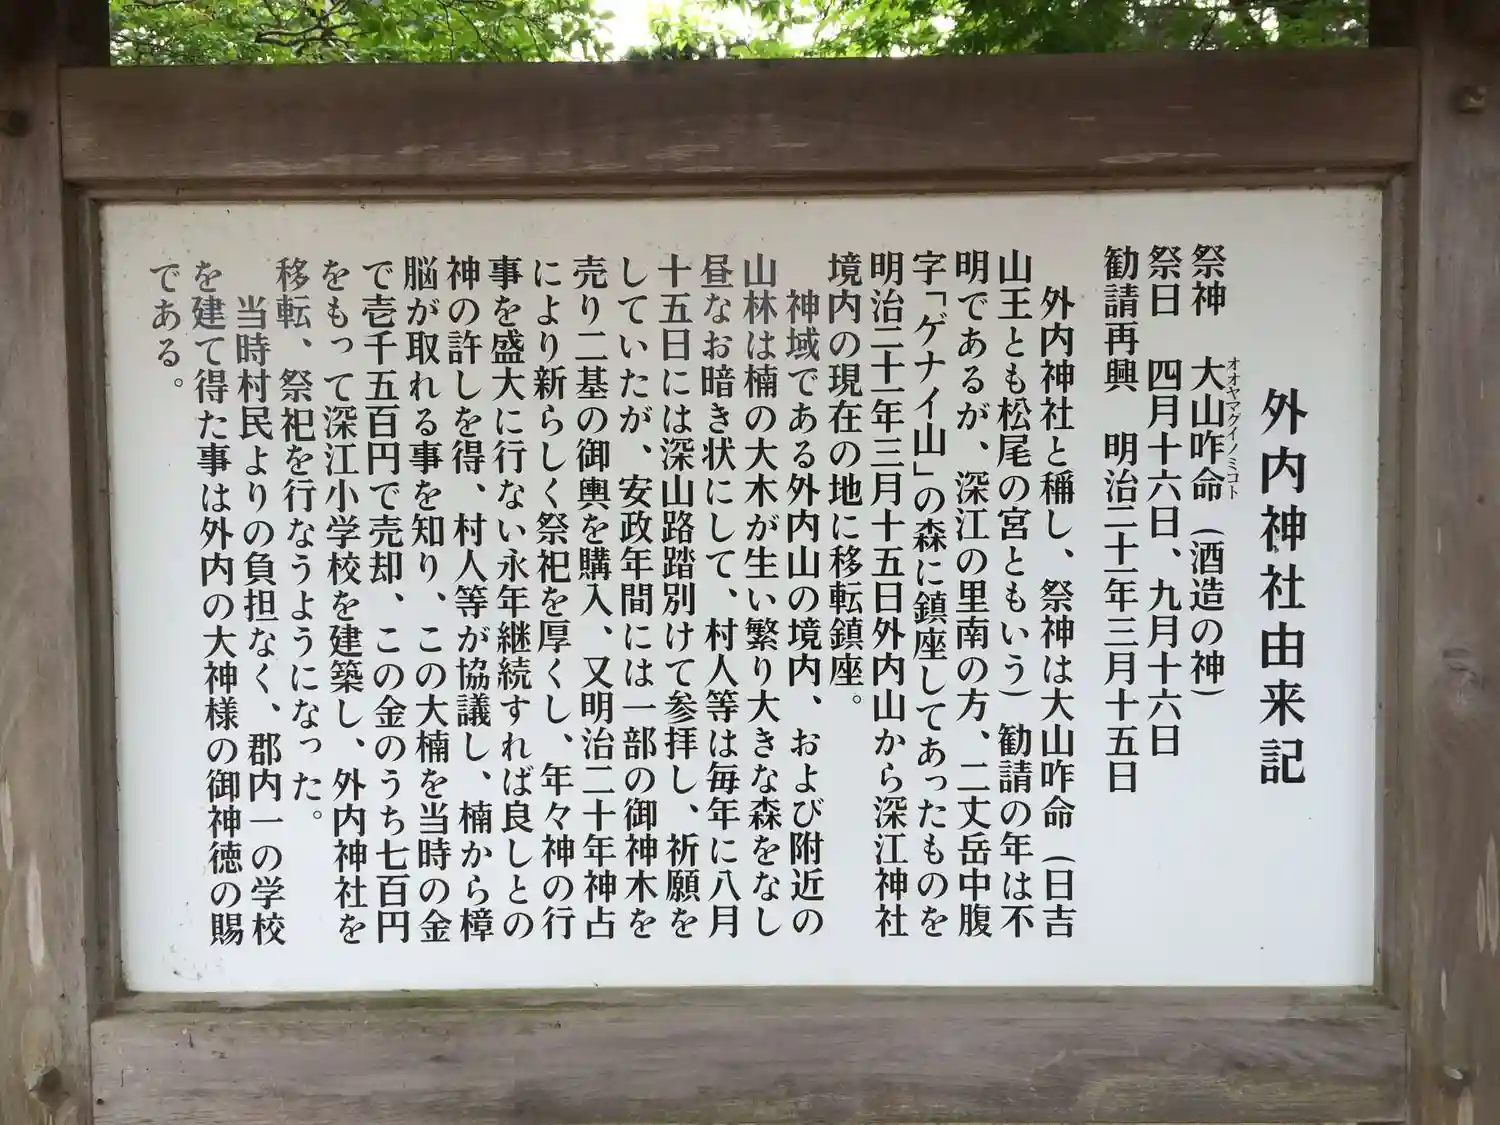 外内神社由来記
祭神　大山咋命（酒造の神）
オオヤマグイノミコト
祭日　四月十六日、九月十六日
勧請再興　明治二十年三月十五日
外内神社と稱し、祭神は大山咋命（日吉
山王とも松尾の宮ともいう）勧請の年は不
明であるが、深江の里南の方、二丈岳中腹
字「ゲナイ山」の森に鎮座してあったものを
明治二十一年三月十五日外内山から深江神社
境内の現在の地に移転鎮座。
神域である外内山の境内、および附近の
山林は楠の大木が生い繁り大きな森をなし
昼なお暗き状にして、村人等は毎年に八月
十五日には深山路踏別けて参拝し、祈願を
していたが、安政年間には一部の御神木を
売り二基の御輿を購入、又明治二十年神占
により新らしく祭祀を厚くし、年々神の行
事を盛大に行ない永年継続すれば良しとの
神の許しを得、村人等が協議し、楠から樟
脳が取れる事を知り、この大楠を当時の金
で壱千五百円で売却、この金のうち七百円
をもって深江小学校を建築し、外内神社を
移転、祭祀を行なうようになった。
当時村民よりの負担なく、郡内一の学校
を建て得た事は外内の大神様の御神徳の賜
である。